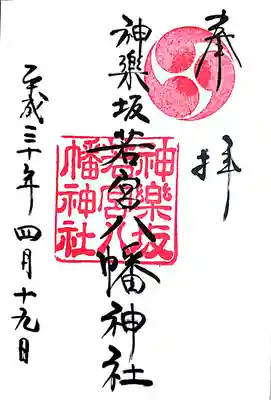 奉拝
神楽坂若宮八幡神社
神楽坂
若宮八
幡神社
平成三十年四月十九日